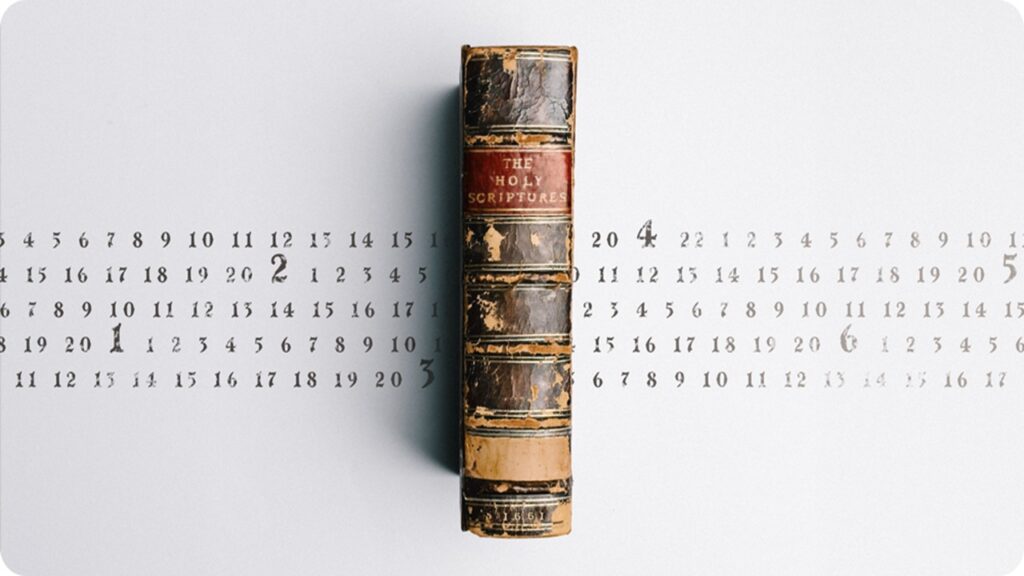 THE
HOLY
SCRIPTURES
4 5 6 7 8 9 10 11 12 13 14 15 20 4 22 1 2 3 4 5 6 7 8 9 10
15 16 17 18 19 20 2 1 2 3 4 5 11 12 13 14 15 16 17 18 19 20 5
6 7 8 9 10 11 12 13 14 15 16 17 2 3 4 5 6 7 8 9 10 11 12 13 14 15
19 20 1 1 2 3 4 5 6 7 8 9 10 15 16 17 18 19 20 6 1 2 3 4 5 6
11 12 13 14 15 16 17 18 19 20 3 6 7 8 9 10 11 12 13 14 15 16 17
1661